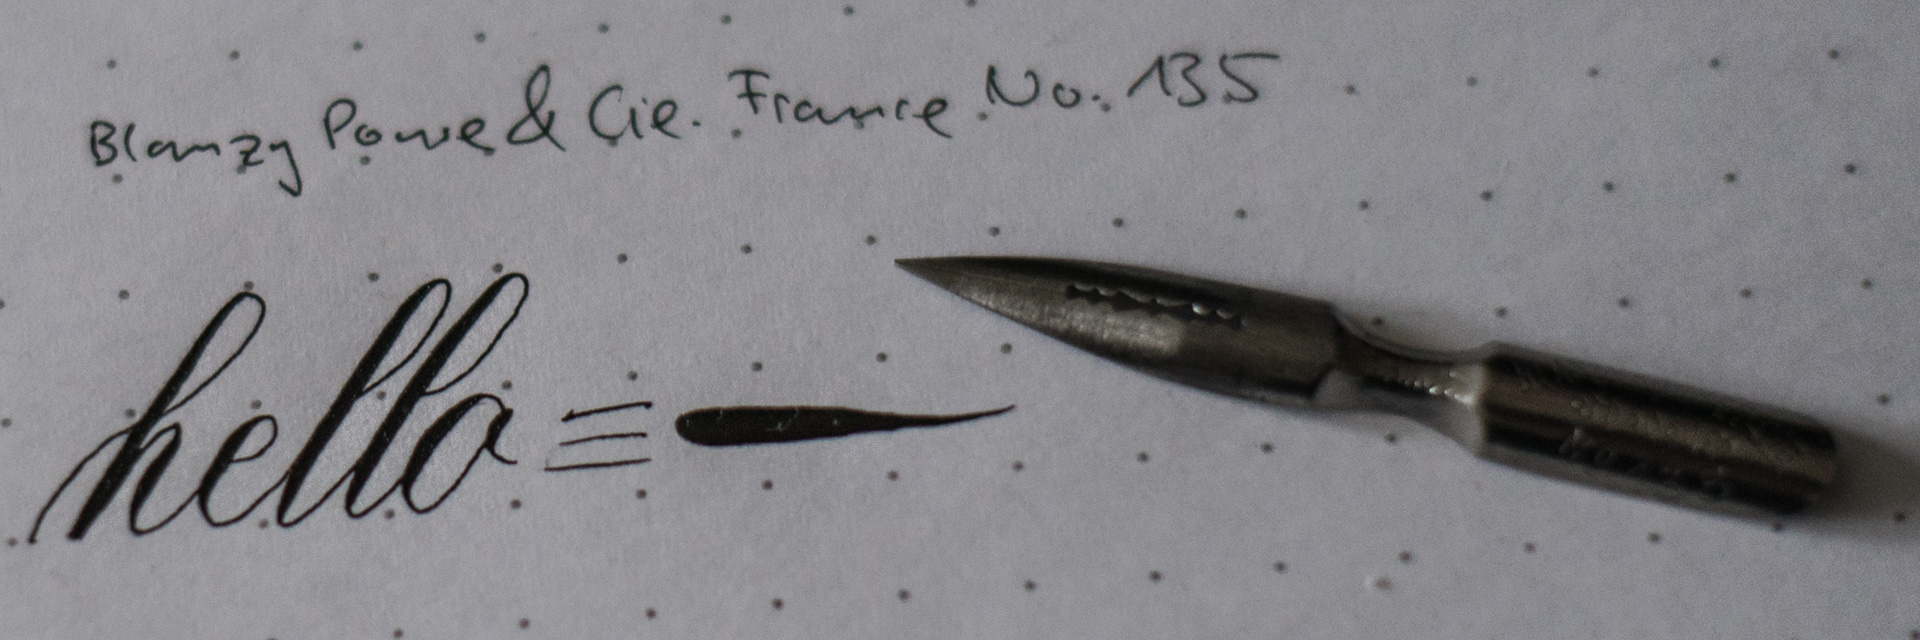 Blanzy Poure & Cie. France No. 135
hello